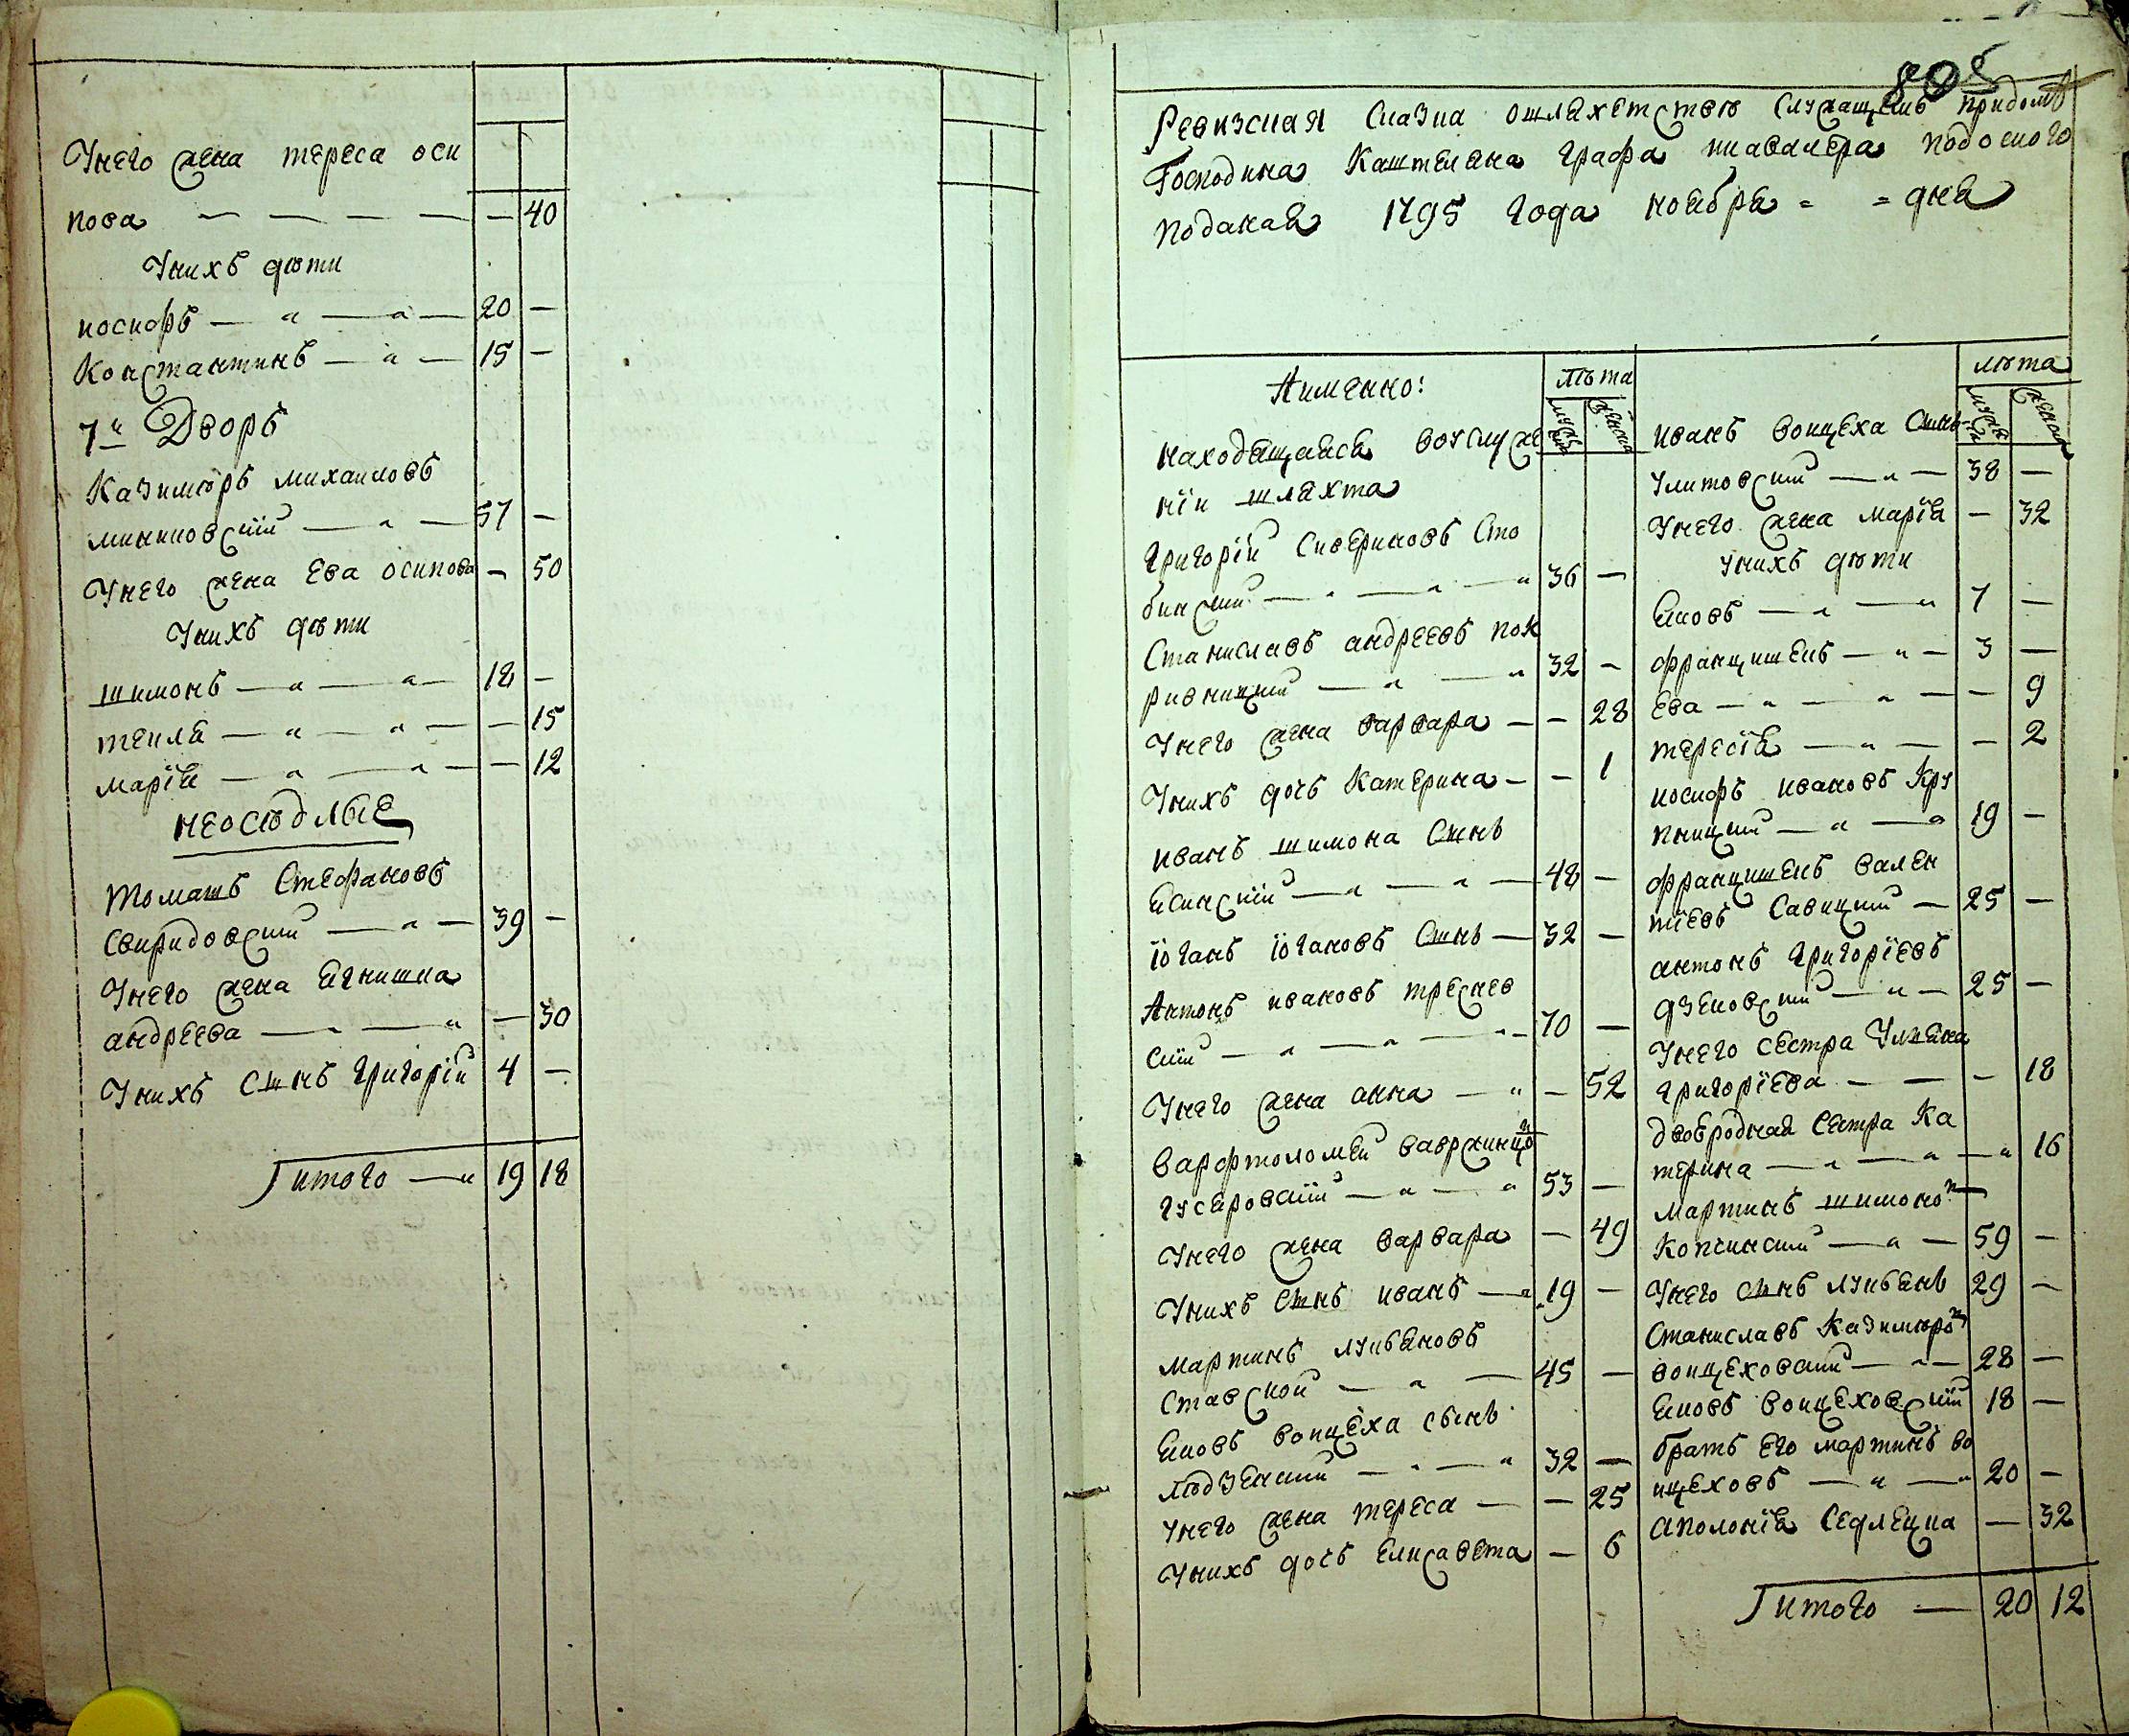 Унего жена тереса оси
пова — — — — — 40
Унихъ дѣти
иосифъ — " — " — 20 —
Константинъ — " — 15 —
7й Дворъ
Казимѣръ михаиловъ
миниовскїй — " — 57 —
Унего жена Ева осипова — 50
Унихъ дѣти
шимонъ — " — " — 18 —
текля — " — " — — 15
марїя — " — " — — 12
неосѣдлые
томашъ Стефановъ
Свиридовский — " — 39 —
Унего жена Ягнишка
андреева — " — " — 30
Унихъ сынъ григорїй 4 —
итого — " 19 18
805
Ревизская Сказка ошляхетствѣ служащемъ придомѣ
Господина Каштеляна графа кавалера подоского
поданая 1795 года ноября = = дня
Аименно:
лѣта
мужска
женска
находящаяся вуслуже
нїи шляхта
григорїй Сивериновъ Сто
бинский — " — " — " 36 —
Станиславъ андреевъ пок
ривницкий — " — " 32 —
Унего жена варвара — — 28
Унихъ дочь Катерина — — 1
иванъ шимона Сынъ
Ясинскїй — " — " — 48 —
їоганъ їогановъ Сынъ — 32 —
Антонъ ивановъ треснев
скїй — " — " — " — 70 —
Унего жена анна — " — 52
варфтоломей вавржинцо
гусаровскїй — " — " 53 —
Унего жена варвара — 49
Унихъ Сынъ иванъ — " 19 —
мартинъ лукьяновъ
Ставской — " — 45 —
Яковъ воицеха сынъ
людзенский — " — " 32 —
Унего жена тереса — — 25
Унихъ дочь Елисавета — 6
лѣта
мужска
женска
иванъ воицеха Сынъ
Улитовский — " — 38 —
Унего жена марїя — 32
Унихъ дѣти
Яковъ — " — " 7 —
францишекъ — " — 3 —
Ева — " — " — — 9
тересїя — " — — 2
иосифъ ивановъ Кру
пницкий — " — " 19 —
францишекъ вален
тїевъ Савицкий — 25 —
антонъ григорїевъ
дзековский — " — 25 —
Унего сестра Улияна
григорїева — — — 18
двоюродная Сестра Ка
терина — " — " — " 16
мартинъ шимоно
Копчинский — " — 59 —
Унего сынъ лукьянъ 29 —
Станиславъ Казимѣро
воицеховский — " — 28 —
Яковъ воицеховскїй 18 —
братъ Его мартинъ во
ицеховъ — " — " 20 —
аполонїя Седлецка — 32
итого — 20 12